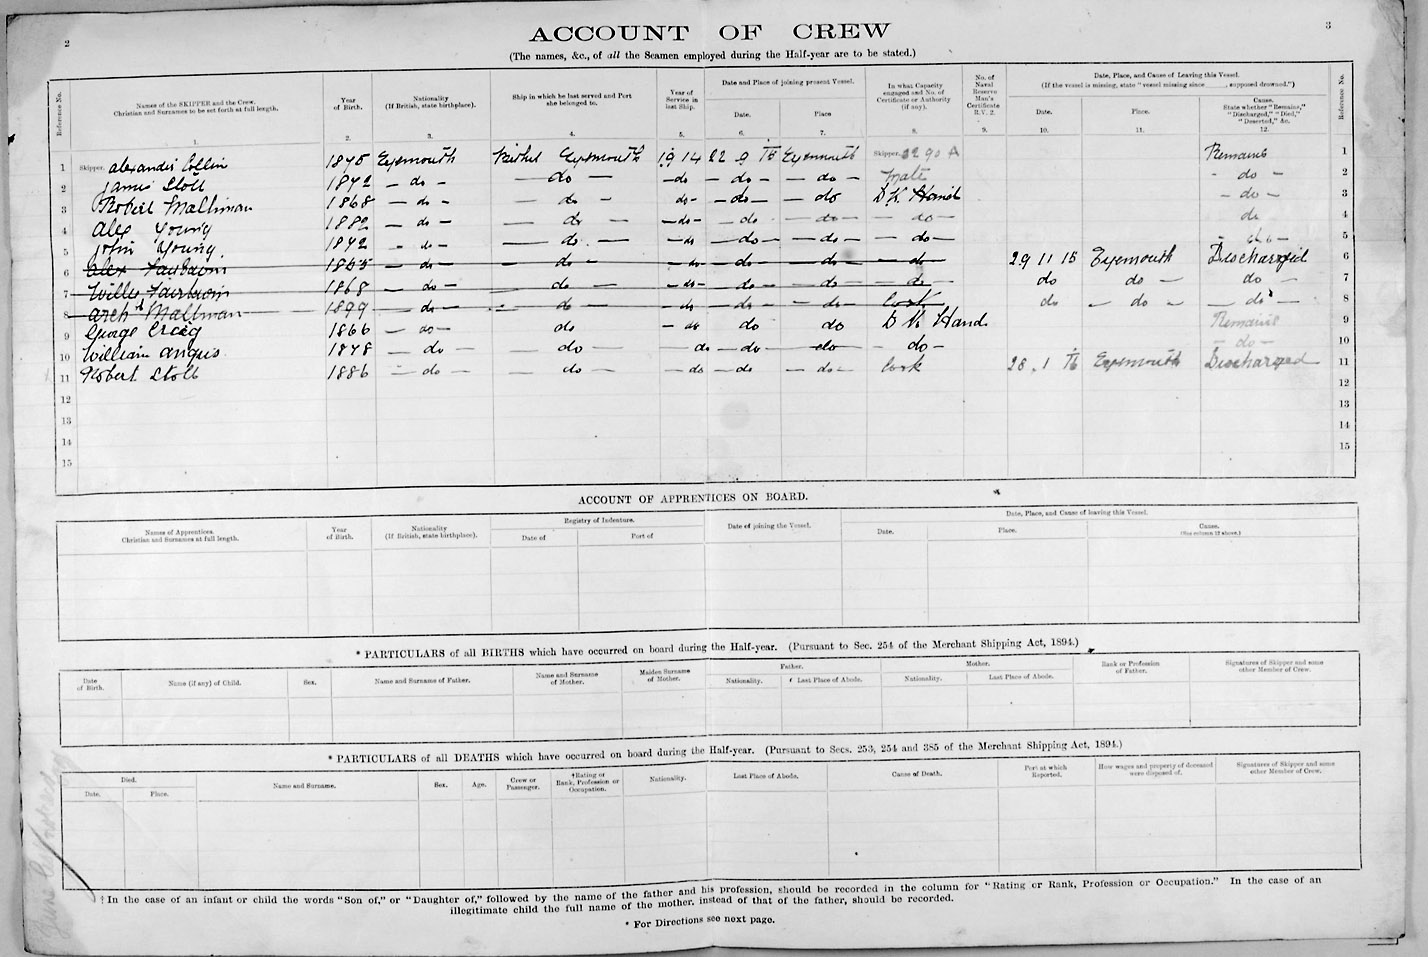 2
3
ACCOUNT OF CREW
(The names, &c., of all the Seamen employed during the Half-year are to be stated.)
Reference No. Names of the SKIPPER and the Crew. Christian and Surnames to be set forth at full length. 1. Year of Birth. 2. Nationality (If British, state birthplace). 3. Ship in which he last served and Port she belonged to. 4. Year of Service in last Ship. 5. Date and Place of joining present Vessel. Date. 6. Place 7. In what Capacity engaged and No. of Certificate or Authority (if any). 8. No. of Naval Reserve Man's Certificate R.V. 2. 9. Date, Place, and Cause of Leaving this Vessel. (If the vessel is missing, state "vessel missing since ____, supposed drowned.") Date. 10. Place. 11. Cause. State whether "Remains," "Discharged," "Died," "Deserted," &c. 12. Reference No.
1 Skipper. Alexander Collin 1875 Eyemouth Eyemouth 1914 22 9 15 Eyemouth Skipper. Remains 1
2 James Stott 1872 - do - - do - - do - do - - do - Mate - do - 2
3 Robert Maltman 1868 - do - - do - do - - do - - do D K Hand - do - 3
4 Alex Young 1882 - do - - do - - do - - do - do - - do - do 4
5 John Young. 1872 - do - - do. - - do - do - - do - - do - - do - 5
6 Alex Fairbairn 1865 - do - - do - - do - - do - - do - - do - 29 11 15 Eyemouth Discharged 6
7 Fairbairn 1868 - do - - do - - do - - do - - do - - do - do do - do - 7
8 Arch Maltman 1899 - do - - do - do - do - - do - Cook do - do - - do - 8
9 George Craig 1866 - do - do - do do do D K Hand Remains 9
10 William Angus 1878 - do - - do - - do - do - do - do - - do - 10
11 Robert Stott 1886 - do - - do - - do - do - do - Cook 28 . 1 16 Eyemouth Discharged 11
12 12
13 13
14 14
15 15
ACCOUNT OF APPRENTICES ON BOARD.
Names of Apprentices. Christian and Surnames at full length. Year of Birth. Nationality (If British, state birthplace). Registry of Indenture. Date of Port of Date of joining the Vessel. Date, Place, and Cause of leaving this Vessel. Date. Place. Cause. (See column 12 above.)
* PARTICULARS of all BIRTHS which have occurred on board during the Half-year. (Pursuant to Sec. 254 of the Merchant Shipping Act, 1894.)
Date of Birth. Name (if any) of Child. Sex. Name and Surname of Father. Name and Surname of Mother. Maiden Surname of Mother. Father. Nationality. Last Place of Abode. Mother. Nationality. Last Place of Abode. Rank or Profession of Father. Signatures of Skipper and some other Member of Crew.
* PARTICULARS of all DEATHS which have occurred on board during the Half-year. (Pursuant to Secs. 253, 254 and 385 of the Merchant Shipping Act, 1894.)
Died. Date. Place. Name and Surname. Sex. Age. Crew or Passenger. †Rating or Rank, Profession or Occupation. Nationality. Last Place of Abode. Cause of Death. Port at which Reported. How wages and property of deceased were disposed of. Signatures of Skipper and some other Member of Crew.
† In the case of an infant or child the words "Son of," or "Daughter of," followed by the name of the father and his profession, should be recorded in the column for "Rating or Rank, Profession or Occupation." In the case of an
illegitimate child the full name of the mother, instead of that of the father, should be recorded.
* For Directions see next page.